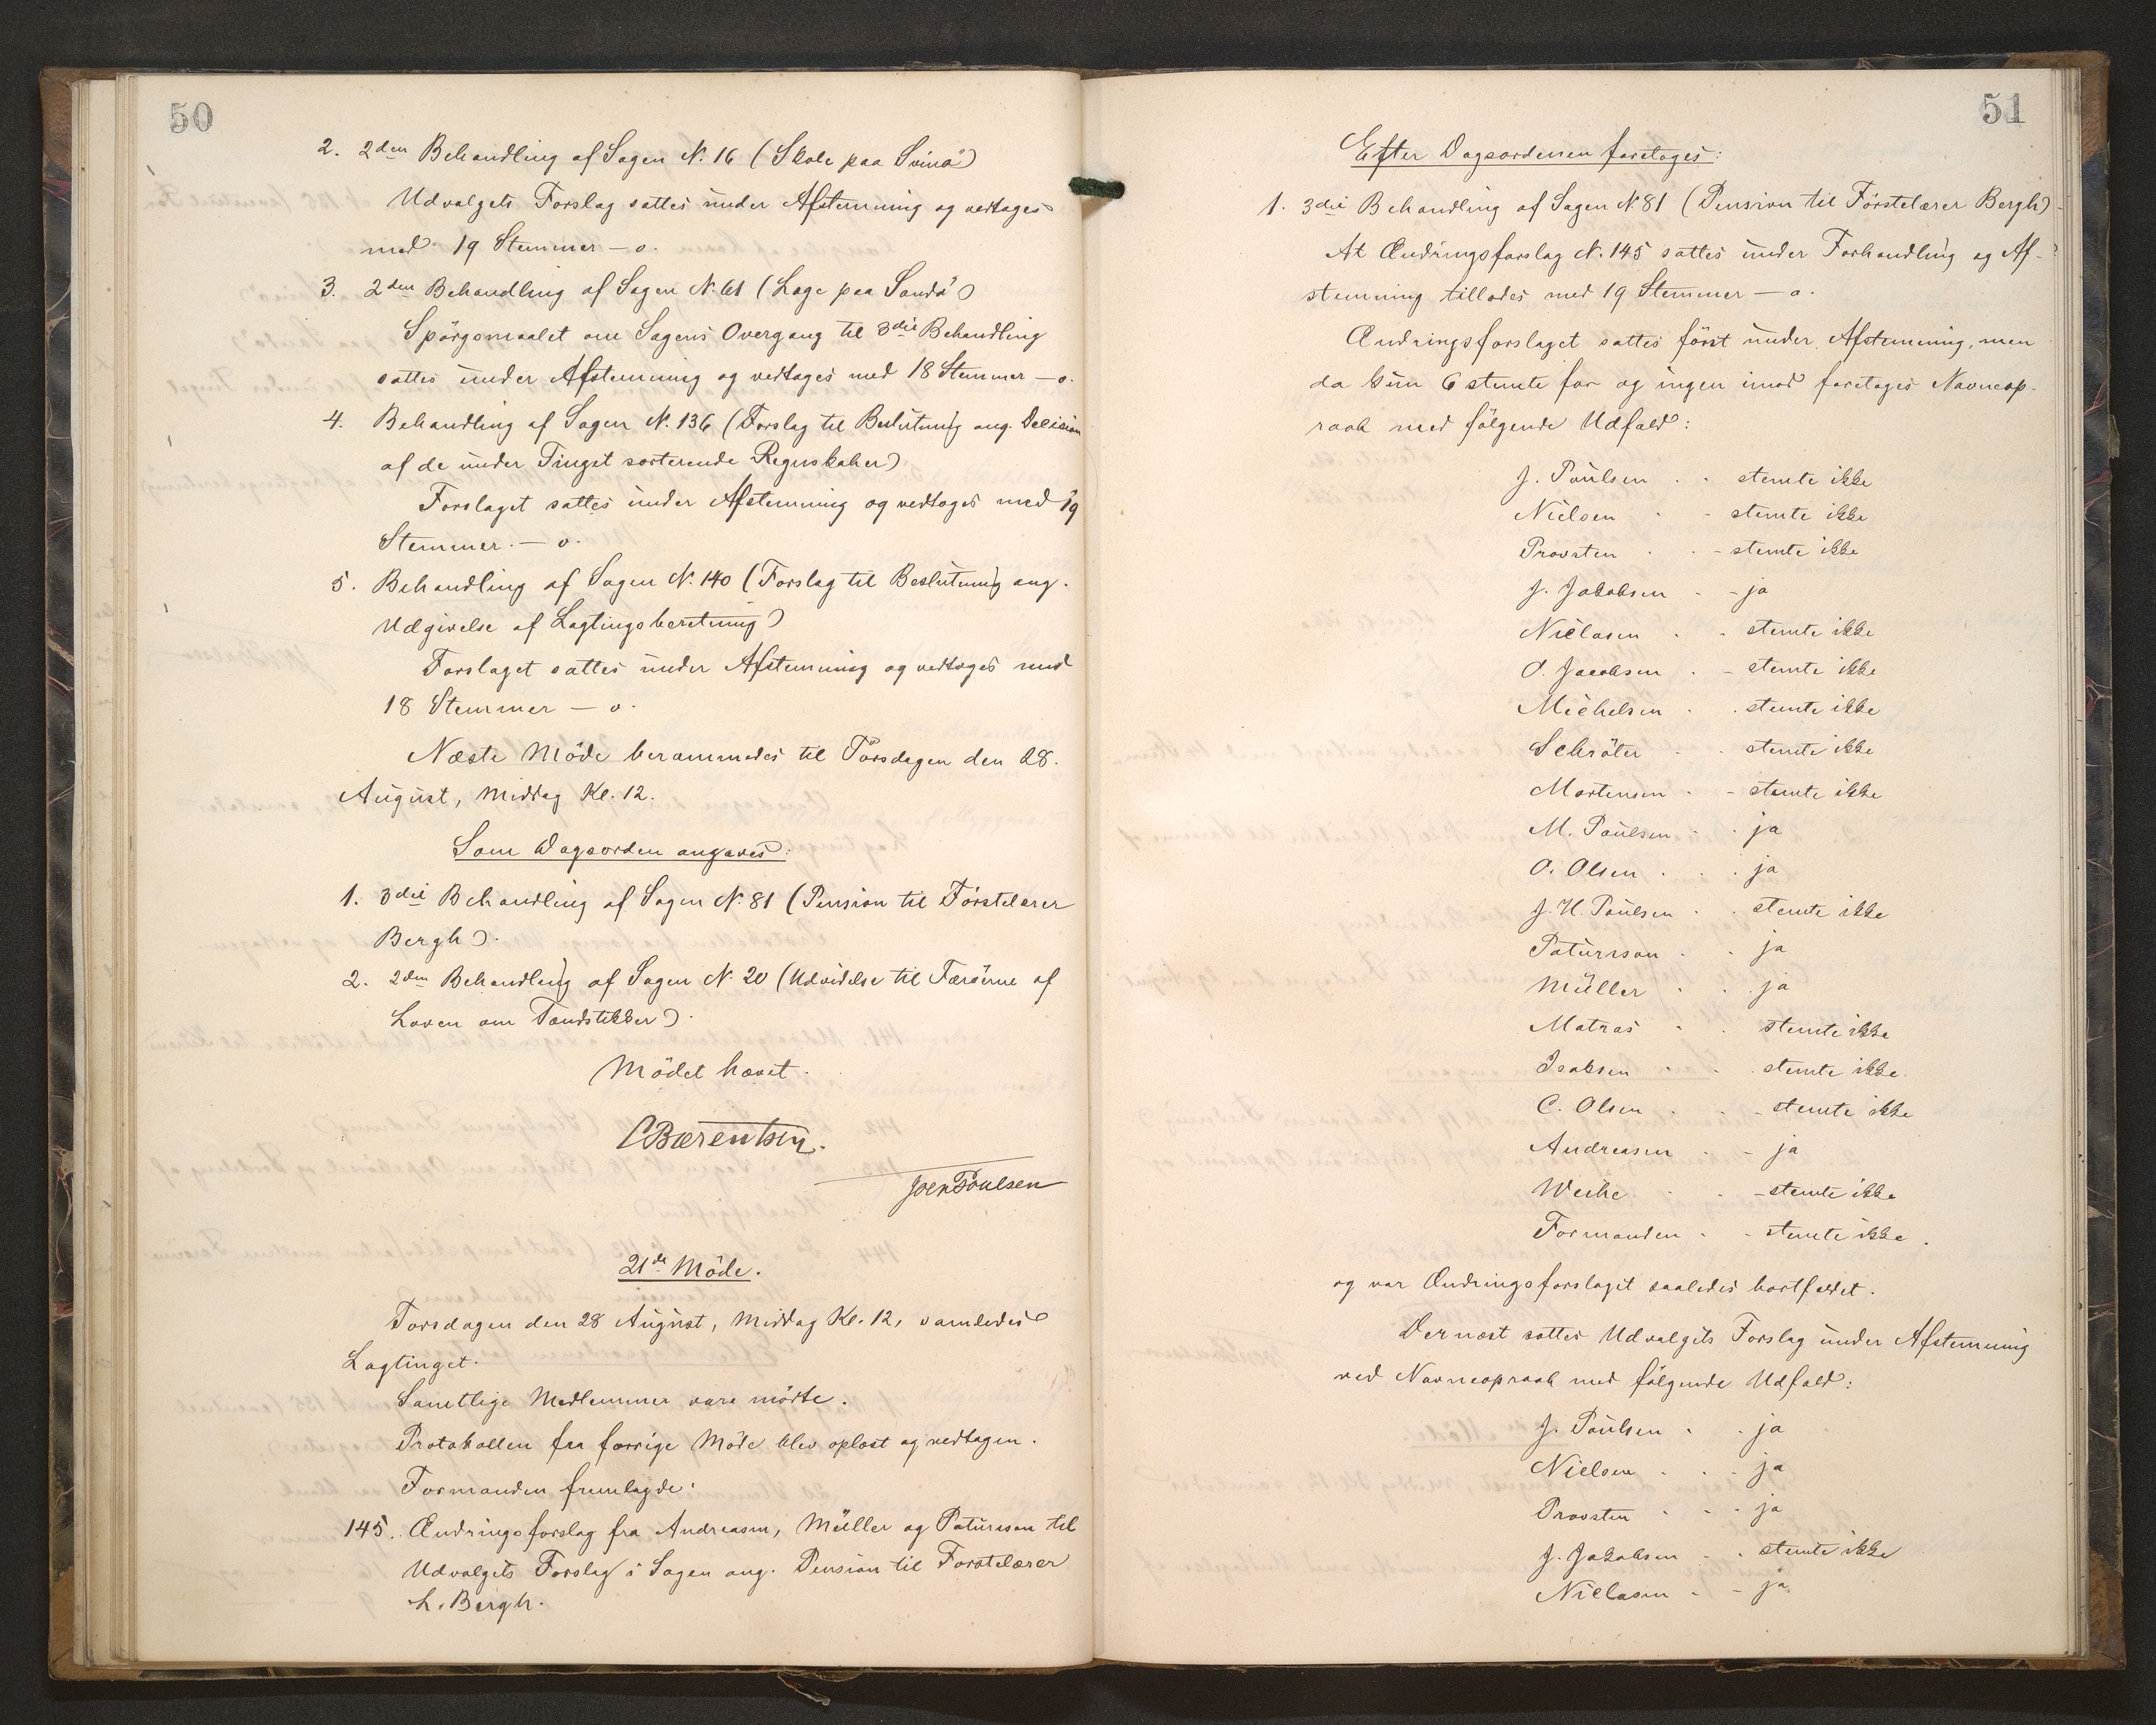 50
2. 2den Behandling af Sagen N. 16 (Skole paa Svinö)
Udvalgets Forslag sattes under Afstemning og vedtoges
med 19 Stemmer – o.
3. 2den Behandling af Sagen N. 61 (Læge paa Sandö)
Spörgsmaalet om Sagens Overgang til 3die Behandling
sattes under Afstemning og vedtoges med 18 Stemmer – o.
4. Behandling af Sagen N. 136 (Forslag til Beslutning ang. Decision
af de under Tinget sorterende Regnskaber)
Forslaget sattes under Afstemning og vedtoges med 19
Stemmer. – o.
5. Behandling af Sagen N. 140 (Forslag til Beslutning ang.
Udgivelse af Lagtingsberetning)
Forslaget sattes under Afstemning og vedtoges med
18 Stemmer – o.
Næste Möde berammedes til Torsdagen den 28.
August, Middag Kl. 12.
Som Dagsorden angaves:
1. 3die Behandling af Sagen N. 81 (Pension til Förstelærer
Bergh).
2. 2den Behandling af Sagen N. 20 (Udvidelse til Færöerne af
Loven om Tændstikker).
Mödet hævet.
CBærentsen.
Joen Poulsen
21de Möde.
Torsdagen den 28 August, Middag Kl. 12, samledes
Lagtinget.
Samtlige Medlemmer vare mödte.
Protokollen fra forrige Möde blev oplæst og vedtagen.
Formanden fremlagde:
145. Ændringsforslag fra Andreasen, Müller og Patursson til
Udvalgets Forslag i Sagen ang. Pension til Förstelærer
L. Bergh.
51
Efter Dagsordenen foretoges:
1. 3die Behandling af Sagen N. 81 (Pension til Förstelærer Bergh)
At Ændringsforslag N. 145 sattes under Forhandling og Af-
stemning tillodes med 19 Stemmer – o.
Ændringsforslaget sattes först under Afstemning, men
da kun 6 stemte for og ingen imod foretoges Navneop-
raab med fölgende Udfald:
J. Poulsen - - stemte ikke
Nielsen - - stemte ikke
Provsten - - stemte ikke
J. Jakobsen - - ja
Niclasen - - stemte ikke
O. Jacobsen - - stemte ikke
Michelsen - - stemte ikke
Schröter - - stemte ikke
Mortensen - - stemte ikke
M. Poulsen - - ja
O. Olsen - - ja
J. H. Poulsen - - stemte ikke
Patursson - - ja
Müller - - ja
Matras - - stemte ikke
Isaksen - - stemte ikke
C. Olsen - - stemte ikke
Andreasen - - ja
Weihe - - stemte ikke
Formanden - - stemte ikke.
og var Ændringsforslaget saaledes bortfaldet.
Dernæst sattes Udvalgets Forslag under Afstemning
ved Navneopraab med fölgende Udfald:
J. Poulsen - - ja
Nielsen - - ja
Provsten - - ja
J. Jakobsen - - stemte ikke
Niclasen - - ja